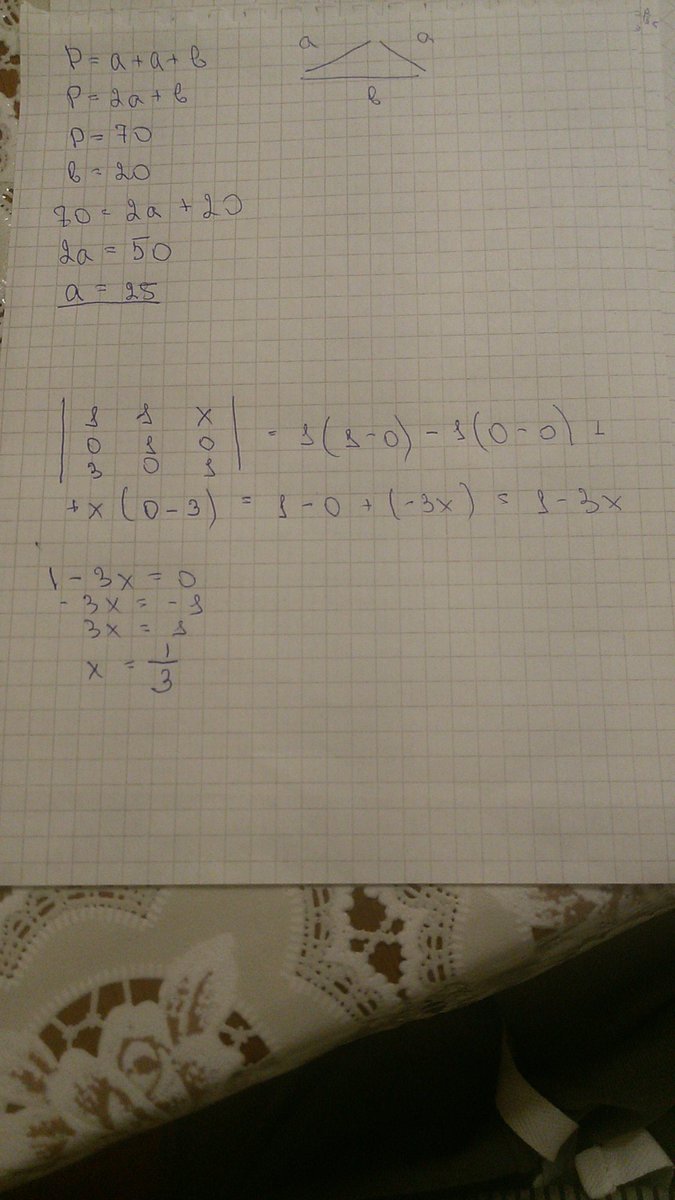 P = a + a + в
P = 2a + в
P = 70
в = 20
70 = 2a + 20
2a = 50
a = 25
a a
в
| 1 1 x |
| 0 1 0 | = 1(1-0) - 1(0-0) +
| 3 0 1 |
+ x(0-3) = 1 - 0 + (-3x) = 1 - 3x
1 - 3x = 0
- 3x = -1
3x = 1
x = 1/3